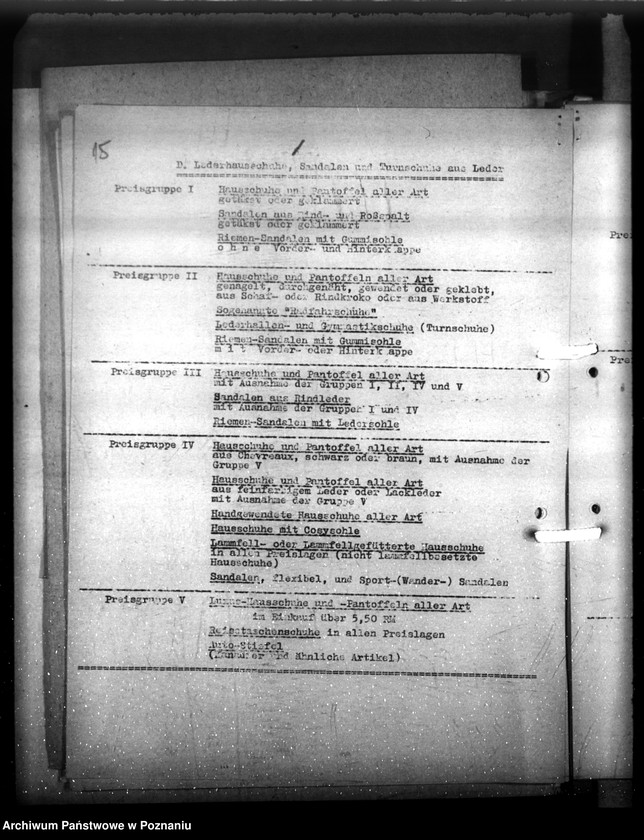 15
D. Lederhausschuhe, Sandalen und Turnschuhe aus Leder
Preisgruppe I Hausschuhe und Pantoffel aller Art
getäkst oder geklammert
Sandalen aus Rind- und Roßspalt
getäkst oder geklammert
Riemen-Sandalen mit Gummisohle
o h n e Vorder- und Hinterkappe
Preisgruppe II Hausschuhe und Pantoffeln aller Art
genagelt, durchgenäht, gewendet oder geklebt,
aus Schaf- oder Rindkroko oder aus Werkstoff
Sogenannte "Radfahrschuhe"
Lederhallen- und Gymnastikschuhe (Turnschuhe)
Riemen-Sandalen mit Gummisohle
m i t Vorder- oder Hinterkappe
Preisgruppe III Hausschuhe und Pantoffel aller Art
mit Ausnahme der Gruppen I, II, IV und V
Sandalen aus Rindleder
mit Ausnahme der Gruppen I und IV
Riemen-Sandalen mit Ledersohle
Preisgruppe IV Hausschuhe und Pantoffel aller Art
aus Chevreaux, schwarz oder braun, mit Ausnahme der
Gruppe V
Hausschuhe und Pantoffel aller Art
aus feinfarbigem Leder oder Lackleder
mit Ausnahme der Gruppe V
Handgewendete Hausschuhe aller Art
Hausschuhe mit Cosysohle
Lammfell- oder Lammfellgefütterte Hausschuhe
in allen Preislagen (nicht lammfellbesetzte
Hausschuhe)
Sandalen, flexibel, und Sport-(Wander-) Sandalen
Preisgruppe V Luxus-Hausschuhe und -Pantoffeln aller Art
im Einkauf über 5,50 RM
Reisetaschenschuhe in allen Preislagen
Auto-Stiefel
und ähnliche Artikel)
Prei
Prei
Archiwum Państwowe w Poznaniu